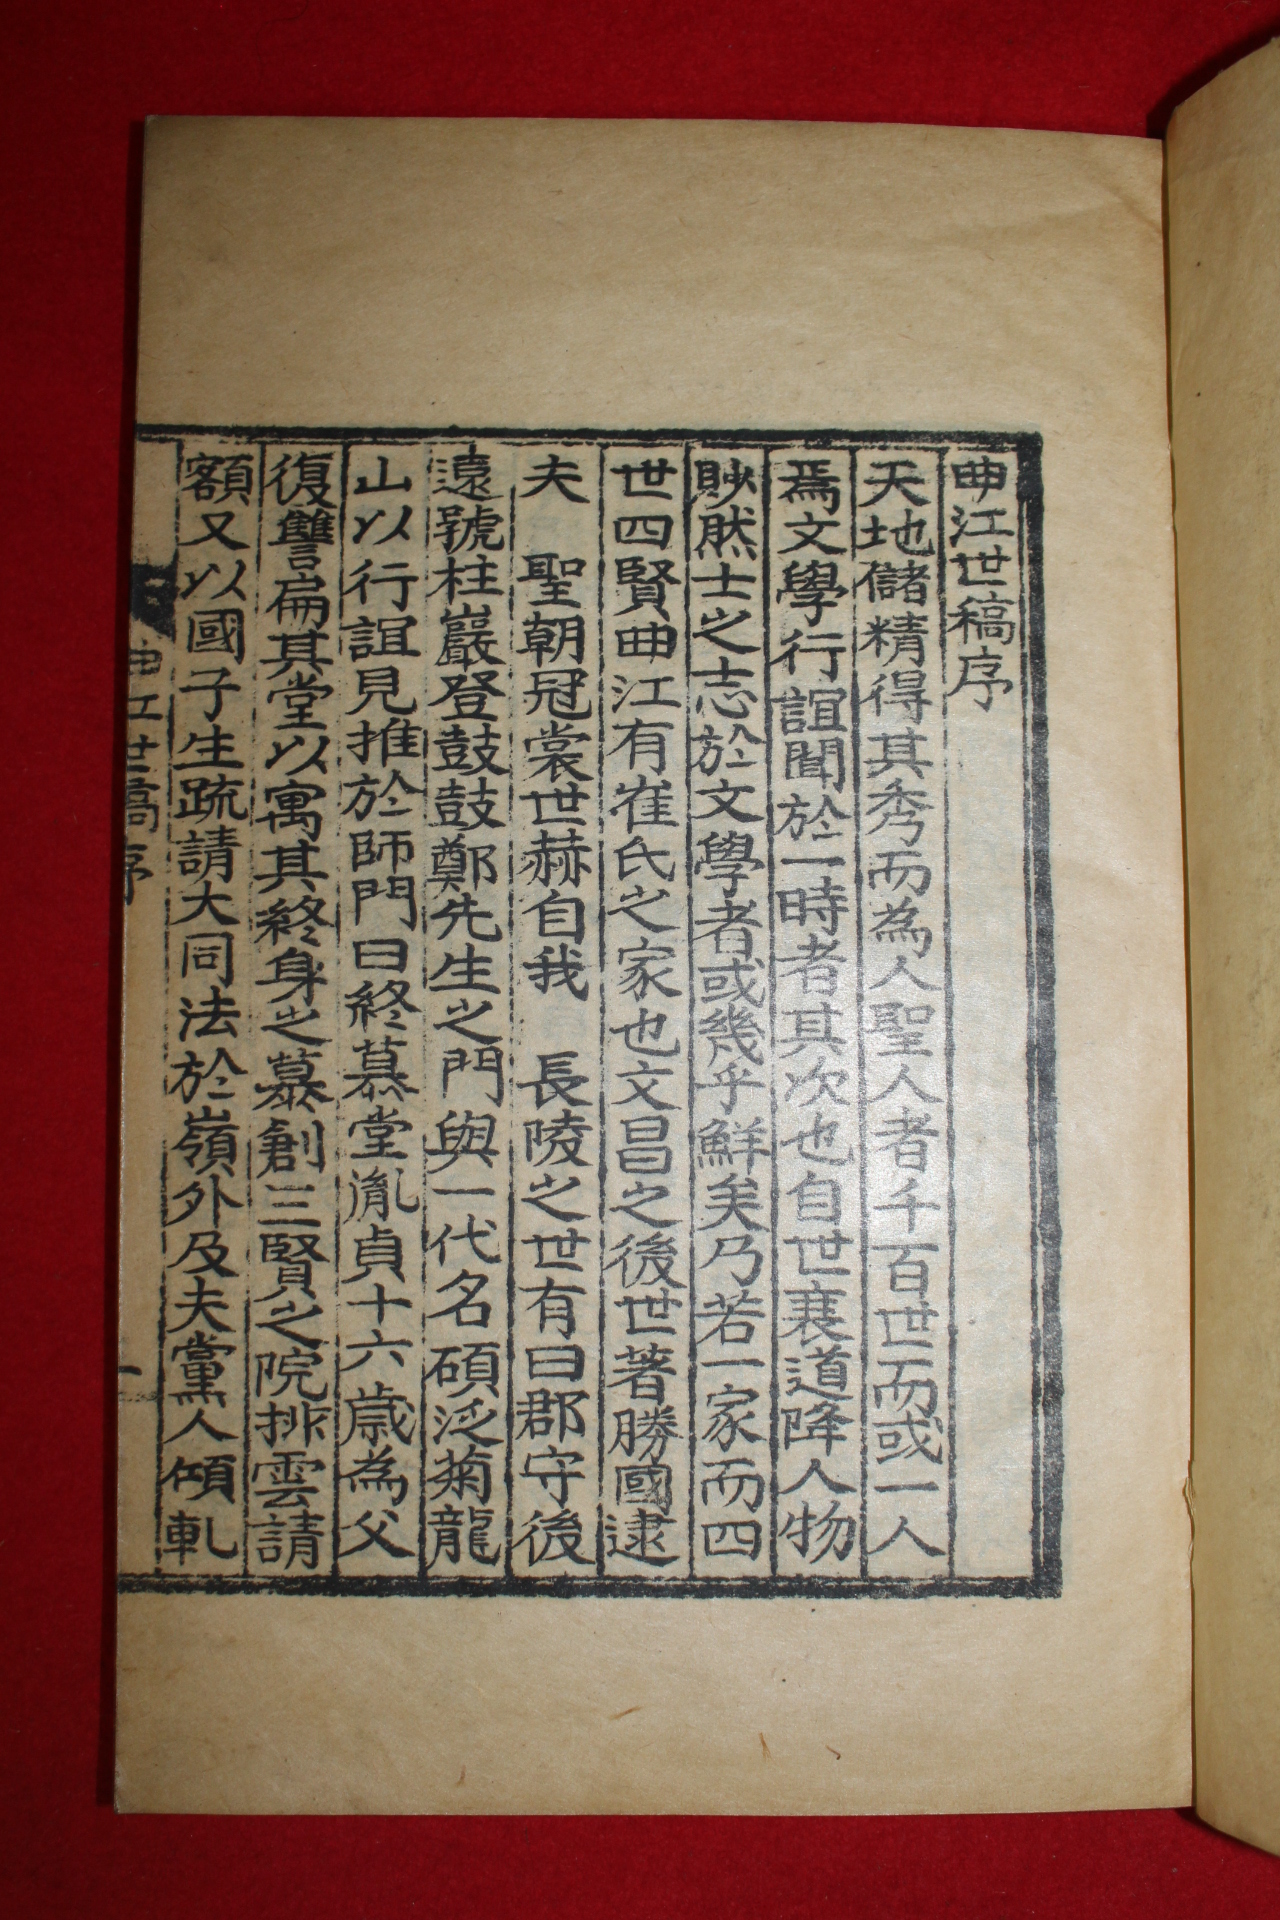 曲江世稿序
天地儲精得其秀而為人聖人者千百世而或一人
焉文學行誼聞於一時者其次也自世衰道降人物
眇然士之志於文學者或幾乎鮮矣乃若一家而四
世四賢曲江有崔氏之家也文昌之後世著勝國逮
夫　聖朝冠裳世赫自我　長陵之世有曰郡守後
遠號柱巖登鼓鼓鄭先生之門與一代名碩泛菊龍
山以行誼見推於師門曰終慕堂胤貞十六歲為父
復讐扁其堂以寓其終身之慕創三賢之院排雲請
額又以國子生疏請大同法於嶺外及夫黨人傾軋
曲江世稿　序　一